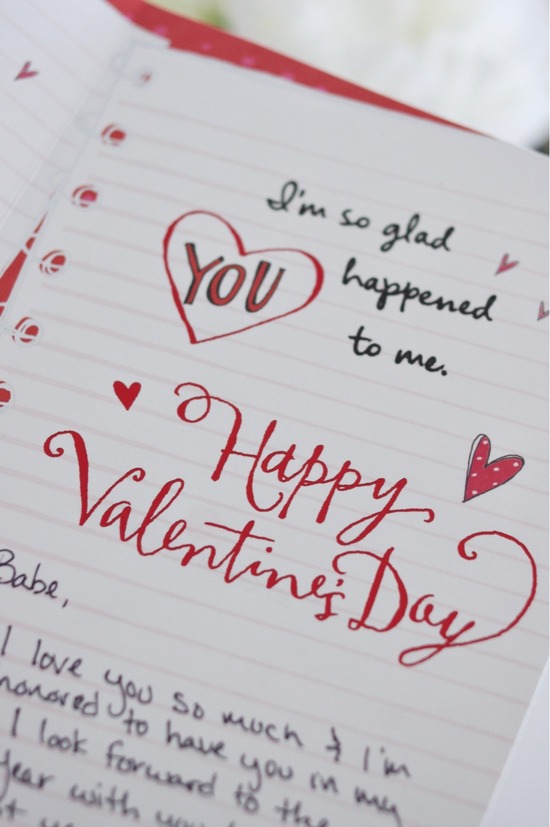 I'm so glad
YOU happened
to me.
Happy
Valentine's Day
Babe,
I love you so much & I'm
honored to have you in my
I look forward to the
year with you